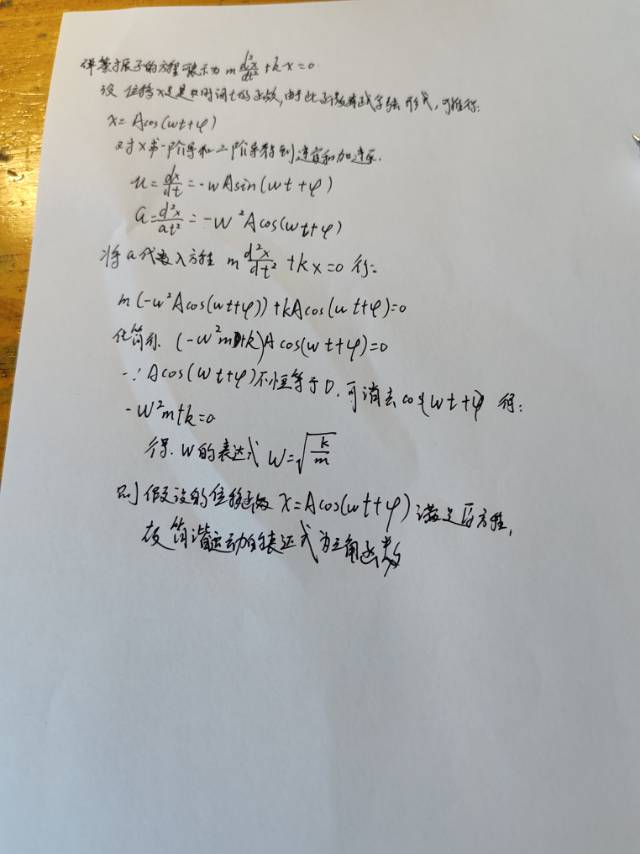 弹簧振子的方程可表示为 m d²x/dt² + kx = 0
设 位移x是时间t的函数,由于此函数 形式,可推得:
x = Acos(wt+φ)
对x求一阶导和二阶导得到速度和加速度.
u = dx/dt = -wAsin(wt+φ)
a = d²x/dt² = -w²Acos(wt+φ)
将a代入方程 m d²x/dt² + kx = 0 得:
m(-w²Acos(wt+φ)) + kAcos(wt+φ) = 0
化简得. (-w²m+k)Acos(wt+φ) = 0
∵ Acos(wt+φ)不恒等于0. 可消去cos(wt+φ) 得:
-w²m+k=0
得. w的表达式 w = √(k/m)
则假设的位移函数 x = Acos(wt+φ) 满足原方程,
故简谐运动的表达式为三角函数